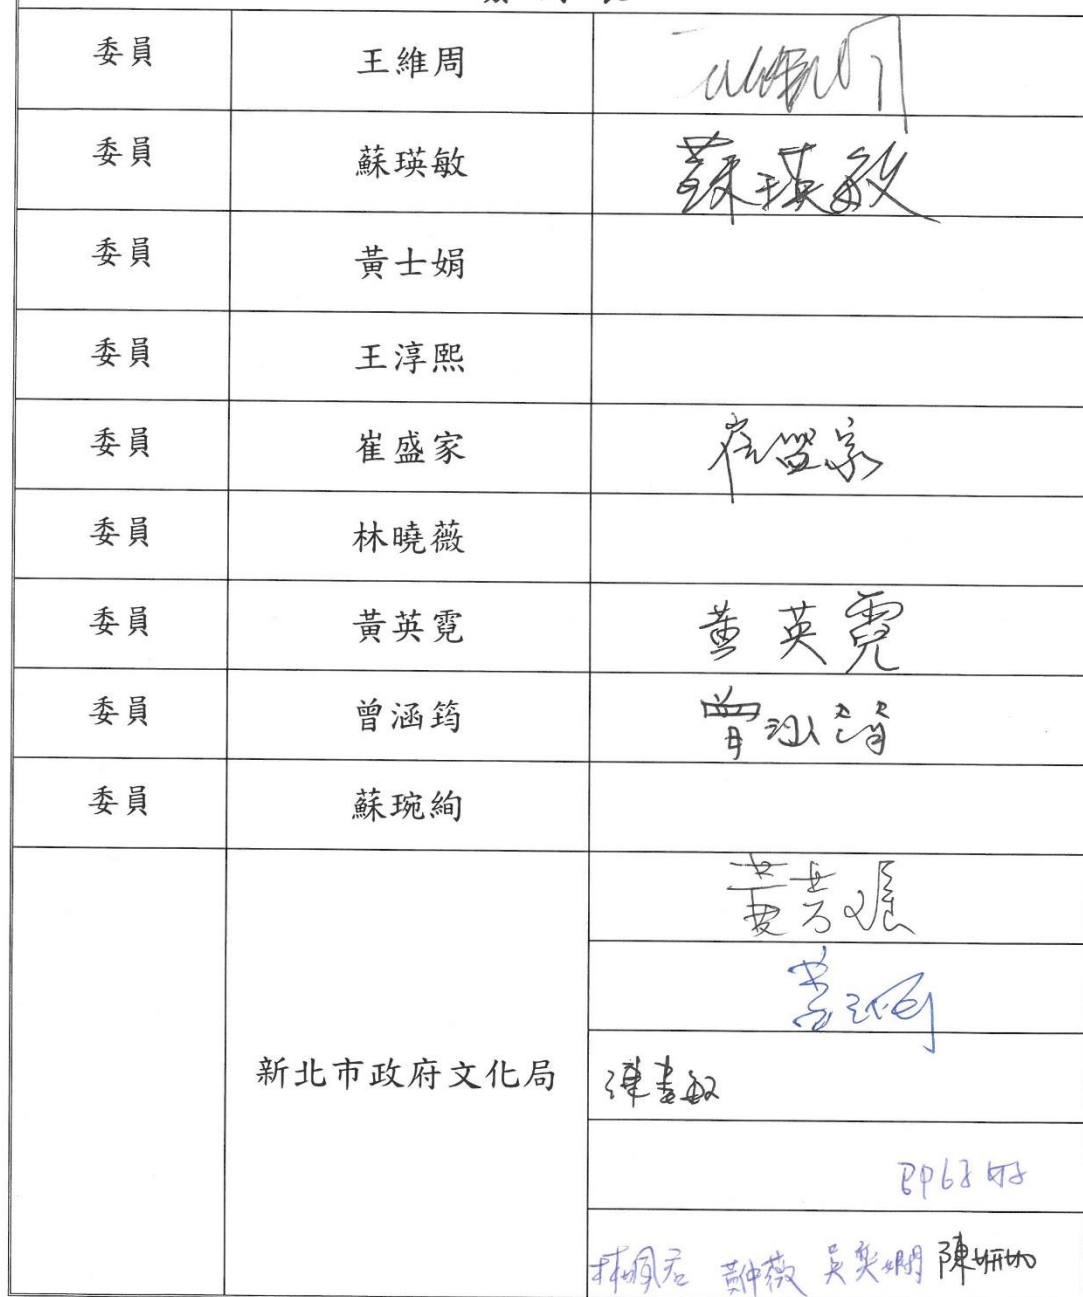 委員 王維周
委員 蘇瑛敏 蘇瑛敏
委員 黃士娟
委員 王淳熙
委員 崔盛家 崔盛家
委員 林曉薇
委員 黃英霓 黃英霓
委員 曾涵筠 曾涵筠
委員 蘇琬絢
新北市政府文化局
林珮君 黃仲薇 吳奕嫺 陳姍